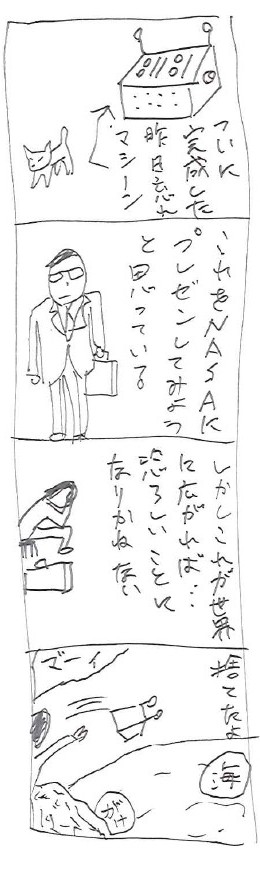 ついに
完成した
昨日忘れ
マシーン
これをNASAに
プレゼンしてみよう
と思っている。
しかしこれが世界
に広がれば…
恐ろしいことに
なりかねない
捨てたよ
でーい
海
がけ